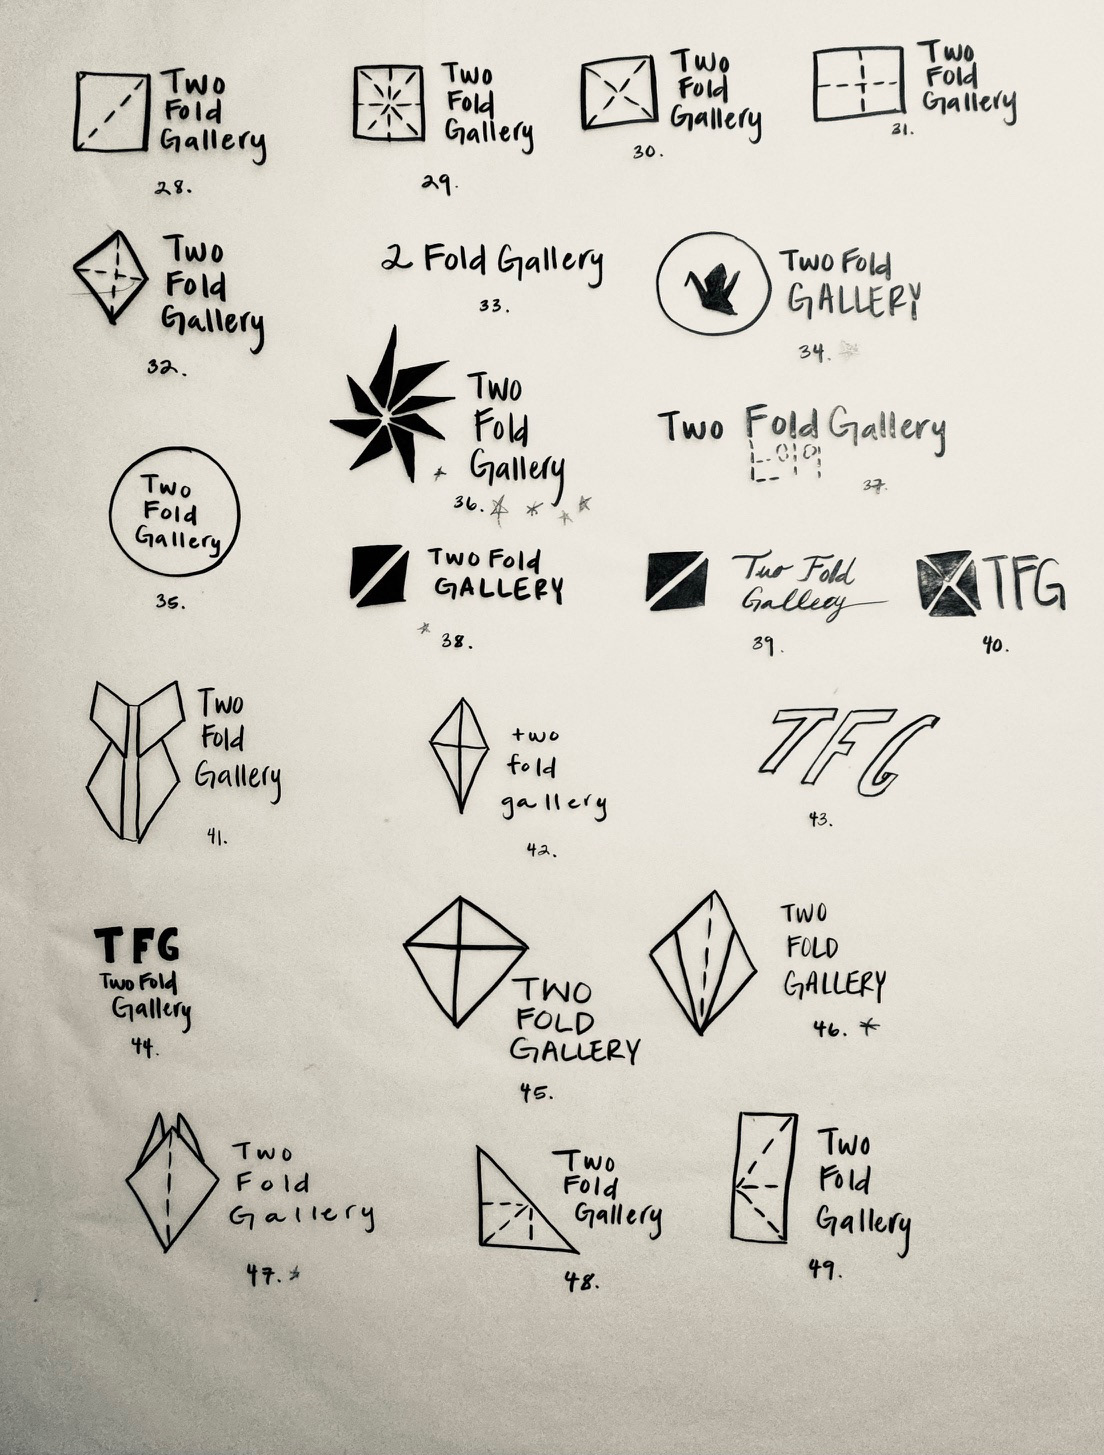 Two
Fold
Gallery
28.
Two
Fold
Gallery
29.
Two
Fold
Gallery
30.
Two
Fold
Gallery
31.
Two
Fold
Gallery
32.
2 Fold Gallery
33.
Two Fold
GALLERY
34.
Two
Fold
Gallery
35.
Two
Fold
Gallery
36.
Two Fold Gallery
37.
Two Fold
GALLERY
38.
Two Fold
Gallery
39.
TFG
40.
Two
Fold
Gallery
41.
two
fold
gallery
42.
TFG
43.
TFG
Two Fold
Gallery
44.
TWO
FOLD
GALLERY
45.
TWO
FOLD
GALLERY
46.
Two
Fold
Gallery
47.
Two
Fold
Gallery
48.
Two
Fold
Gallery
49.